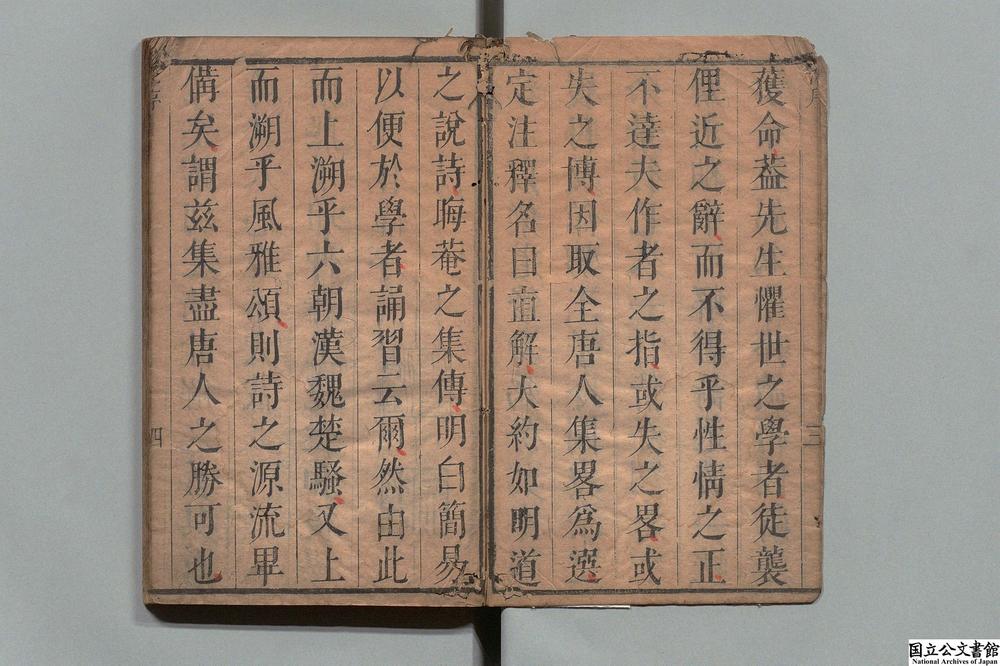 獲命葢先生懼世之學者徒襲
俚近之辭而不得乎性情之正
不達夫作者之指或失之畧或
失之傳因取全唐人集畧爲選
定注釋名曰直解大約如明道
之說詩晦菴之集傳明白簡易
以便於學者誦習云爾然由此
而上溯乎六朝漢魏楚騷又上
而溯乎風雅頌則詩之源流畢
備矣謂兹集盡唐人之勝可也
三
四
国立公文書館
National Archives of Japan